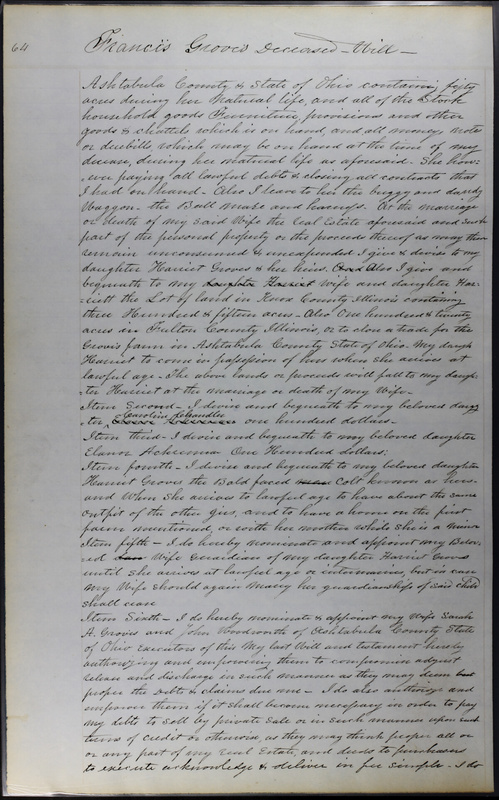 64
Francis Groves Deceased - Will -
Ashtabula County & State of Ohio containing fifty
acres during her Natural life, and all of the Stock
household goods Furniture, provisions and other
goods & chattels which is on hand, and all money, notes
or duebills which may be on hand at the time of my
decease, during her material life as aforesaid. She how-
-ever paying all lawful debts & closing all contracts that
I had on hand - Also I leave to her the buggy and
Waggon - the Ball Mare and harness. At the marriage
or death of my said Wife the real Estate aforesaid and such
part of the personal property or the proceeds thereof as may then
remain unconsumed & unexpended I give & devise to my
daughter Harriet Groves & her heirs. And Also I give and
bequeath to my daughter Harriet wife and daughter Har-
-riett the Lot of land in Knox County Illinois containing
three Hundred & fifteen acres - Also One hundred & twenty
acres in Fulton County Illinois, or to close a trade for the
Groves farm in Ashtabula County State of Ohio. My daugh
Harriet to come in possession of her when she arrives at
lawful age - The above lands or proceeds will fall to my daugh-
-ter Harriet at the marriage or death of my Wife -
Item Second - I divise and bequeath to my beloved daugh
-ter Caroline one hundred dollars -
Item third - I divise and bequeath to my beloved daughter
Elanor Ackerman One Hundred dollars;
Item fourth - I divise and bequeath to my beloved daughter
Harriet Groves the Bald faced mare Colt known as hers
and When she arrives to lawful age to have about the same
outfit of the other girs, and to have a home on the first
farm mentioned, or with her mother while she is a minor
Item fifth - I do hereby nominate and appoint my Belov-
-ed Wife Guardian of my daughter Harriet Groves
until she arrives at lawful age or intermarries, but in case
my Wife should again marry her guardianship of said child
shall cease
Item Sixth - I do hereby nominate & appoint my Wife Sarah
A. Groves and John Woodworth of Ashtabula County State
of Ohio executors of this My last Will and testament hereby
authorizing and empowering them to compromise adjust
release and discharge in such manner as they may deem best
proper the debts & claims due me - I do also authorize and
empower them if it shall become necessary in order to pay
my debt to sell by private sale or in such manner upon such
terms of credit or otherwise as they may think proper all or
or any part of my real Estate, and deeds to purchasers
to execute acknowledge & deliver in fee simple - I do